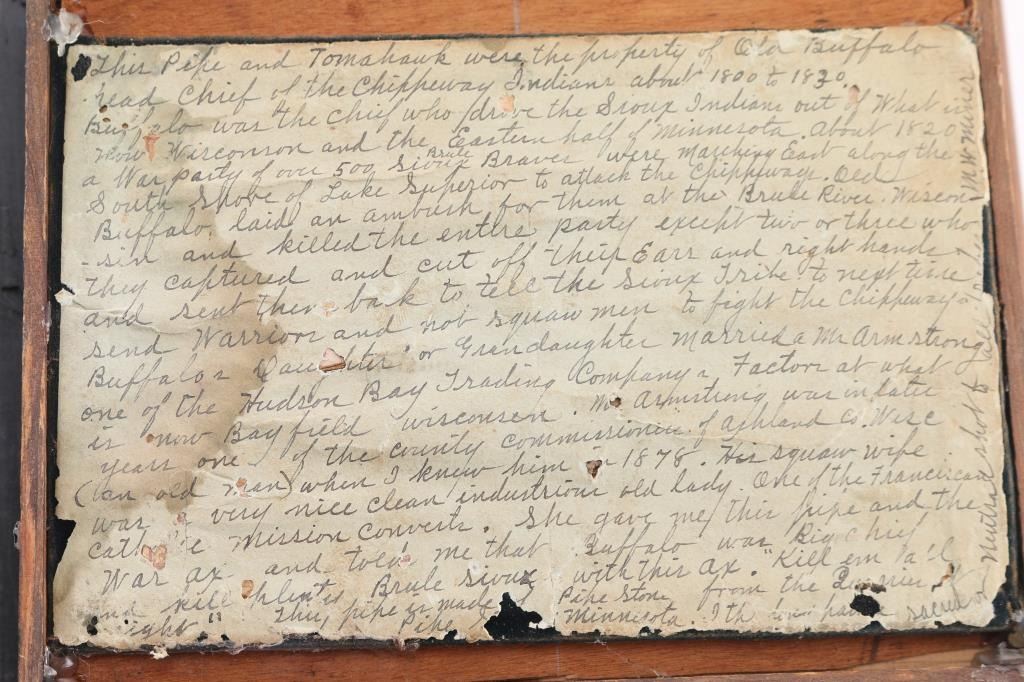 This Pipe and Tomahawk were the property of Old Buffalo
head Chief of the Chippeway Indians about 1800 to 1830.
Buffalo was the chief who drove the Sioux Indians out of What is
now Wisconson and the Eastern half of Minnesota. About 1820
a War party of over 500 Sioux Brule Braves were Marching East along the
South Shore of Lake Superior to attack the Chippeways. Old
Buffalo laid an ambush for them at the Brule River. Wiscon
-sin and killed the entire party except two or three who
they captured and cut off their Ears and right hands
and sent them back to tell the Sioux Tribe to next time
send Warriors and not squaw men to fight the Chippeways
Buffalos Daughter or Grandaughter married a Mr Armstrong
one of the Hudson Bay Trading Companys Factors at what
is now Bayfield wisconsen. Mr Armstrong was in later
years one of the county commissioners of Ashland Co. Wisc
(an old man) when I knew him in 1878. His squaw wife
was a very nice clean industrious old lady. One of the Franciscan
catholic mission converts. She gave me this pipe and the
War ax and told me that Buffalo was Big Chief
and kill plenty Brule Sioux with this ax. "Kill em all
right" This pipe is made Pipe Stone from the
Pipe Minnesota.
Neutral shot to
Mr miner